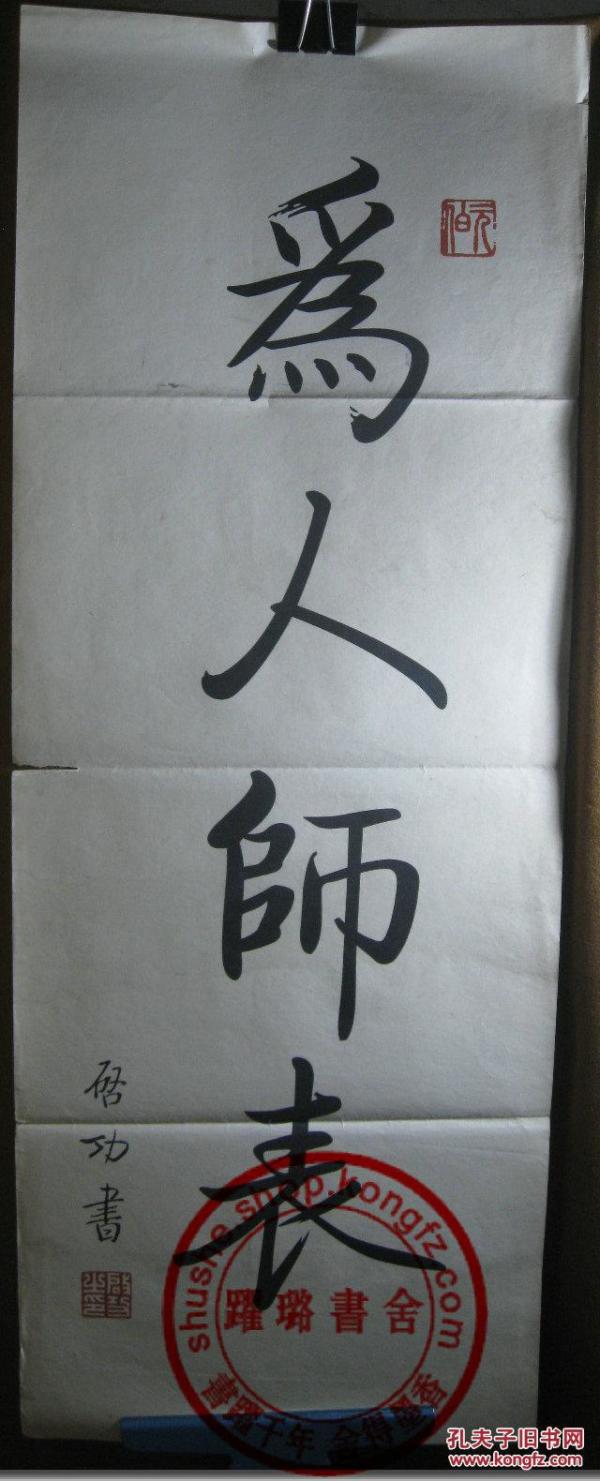 爲人師表
元伯
啓功書
啓功之印
shushe.shop.kongfz.com
躍璐書舍
書躍千年
孔夫子旧书网
www.kongfz.com